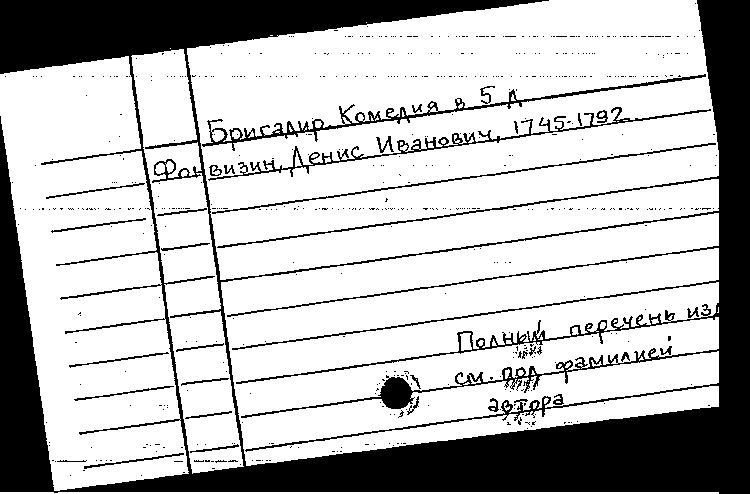 Бригадир. Комедия в 5 д
Фонвизин, Денис Иванович, 1745-1792
Полный перечень изд
см. под фамилией
автора